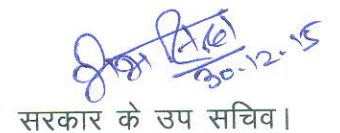 30-12-15
सरकार के उप सचिव।